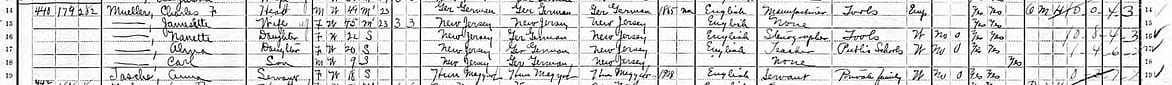 14 440 179 282 Mueller, Charles F Head M W 44 M 23 Ger German Ger German Ger German 1865 na English Manufacturer Tools Emp Yes Yes O M H 0 0 4 3 14
15 ——, Wife F W 45 M 23 3 3 New Jersey New Jersey New Jersey English None Yes Yes 15
16 ——, Nanette Daughter F W 22 S New Jersey Ger German New Jersey English Stenographer Tools W No 0 Yes Yes
17 ——, Daughter F W 20 S New Jersey Ger German New Jersey English Teacher Public Schools W No 0 Yes Yes
18 ——, Carl Son M W 9 S New Jersey Ger German New Jersey None Yes
19 Anna Servant F W 18 S Hun Magyar Hun Magyar Hun Magyar 1908 English Servant Private family W No 0 Yes Yes 19